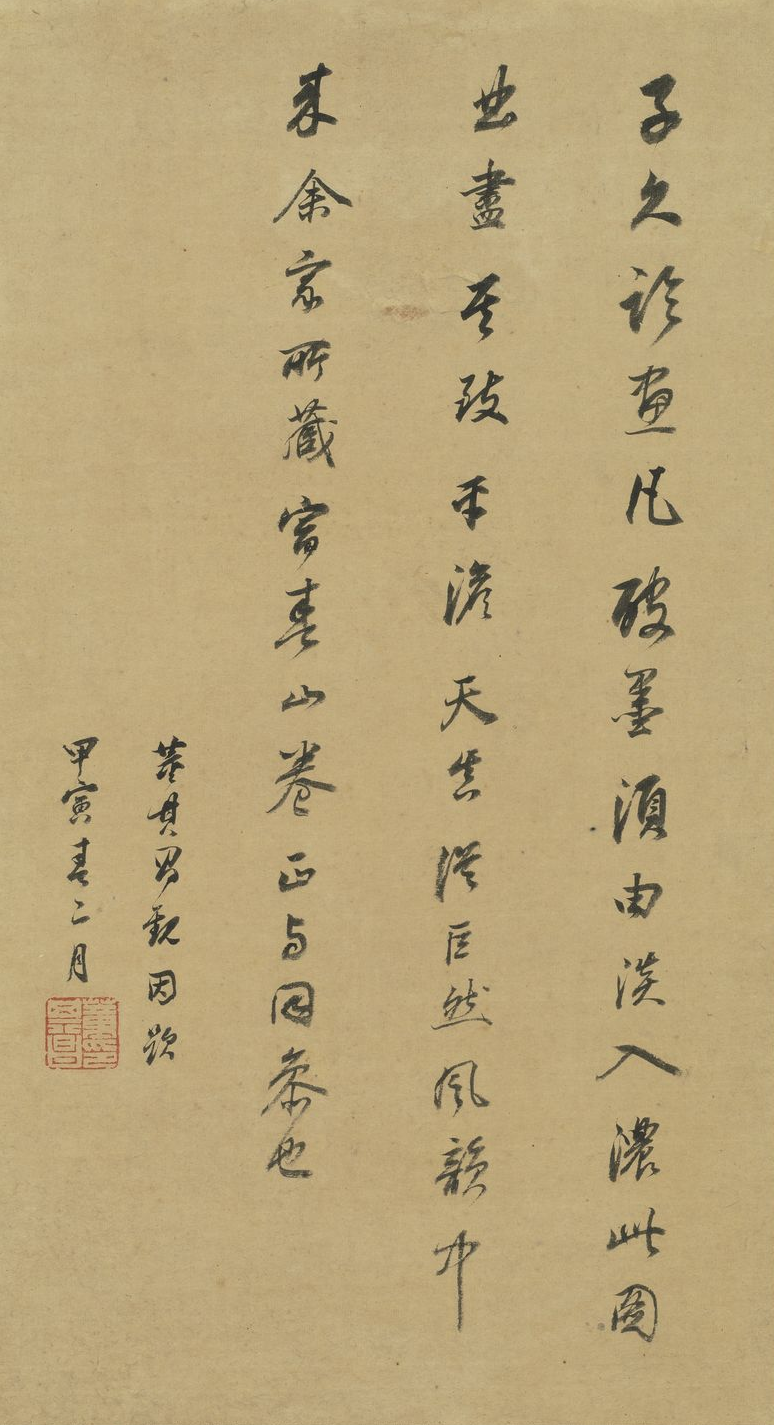 子久論畫凡破墨須由淡入濃此圖
曲盡其致平澹天真從巨然風韻中
来余家所藏富春山卷正与同參也
董其昌觀因題
甲寅春二月